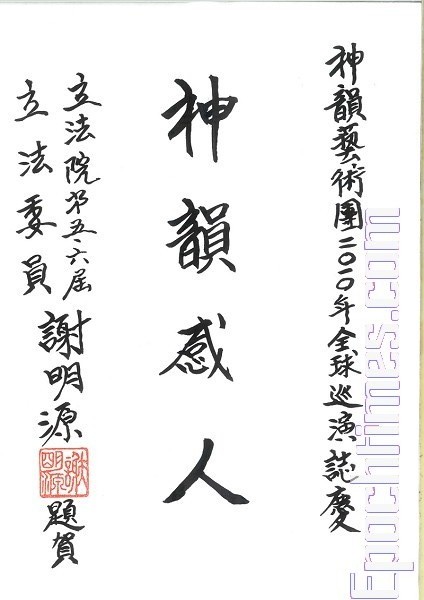 神韻藝術團二〇一〇年全球巡演誌慶
神韻感人
立法院第五、六屆
立法委員 謝明源 題賀
謝明源
Epochtimes.com